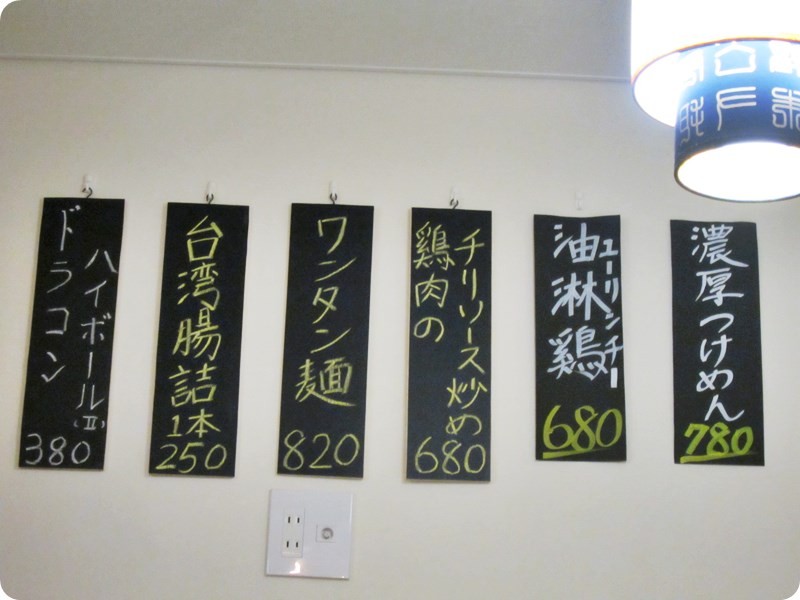 濃厚つけめん
780
ユーリンチー
油淋鶏
680
鶏肉の
チリソース炒め
680
ワンタン麺
820
台湾腸詰
1本
250
ドラコン
ハイボール(II)
380